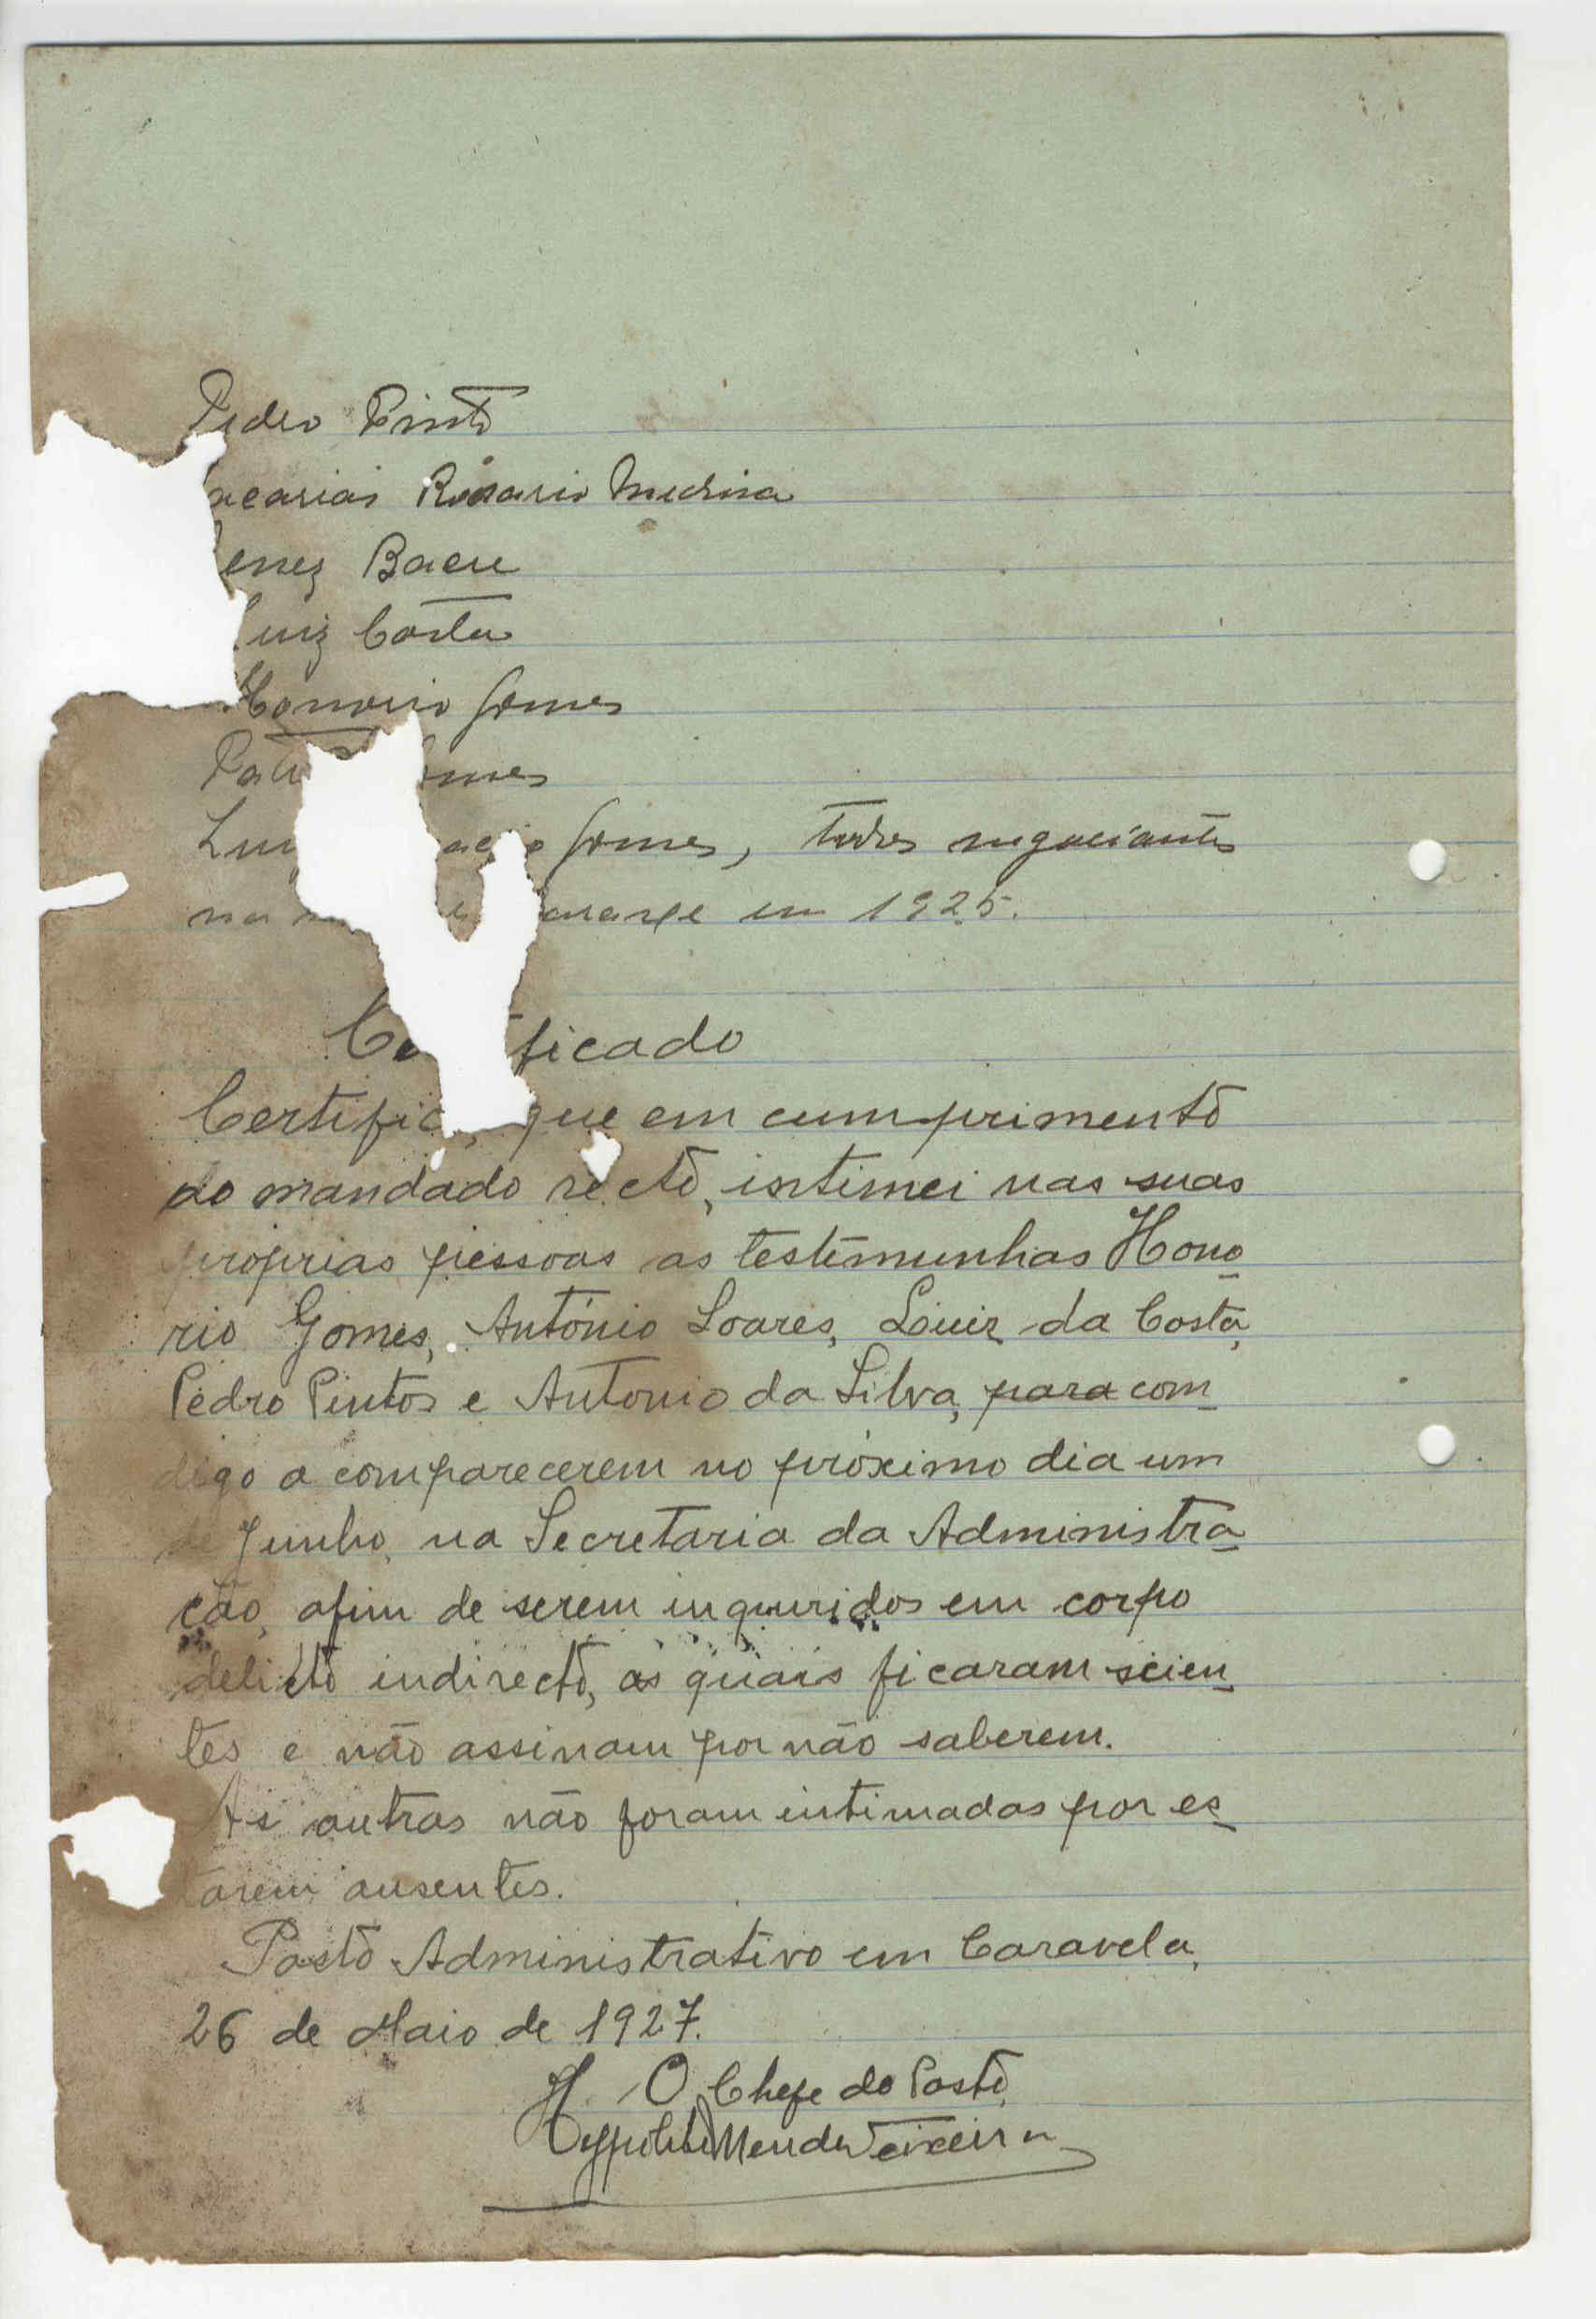 Pedro Pinto
acarias Rosario Medina
enez Bacu
Luiz Costa
Honorio Gomes
Gomes
Gomes, todos negociantes
em 1925.
Certificado
Certifico, que em cumprimento
do mandado recto, intimei nas suas
proprias pessoas as testemunhas Hono-
rio Gomes, António Soares, Luiz da Costa,
Pedro Pintos e Antonio da Silva, para com-
digo a comparecerem no próximo dia um
de Junho, na Secretaria da Administra-
ção, afim de serem inquiridos em corpo
delicto indirecto, as quais ficaram scien-
tes e não assinam por não saberem.
As outras não foram intimadas por es-
tarem ausentes.
Posto Administrativo em Caravela,
26 de Maio de 1927.
O Chefe do Posto,
Hyppolito Mendes Teixeira